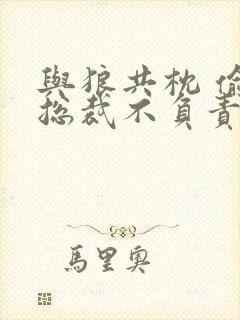 與狼共枕 偷
總裁不負責
馬里奧